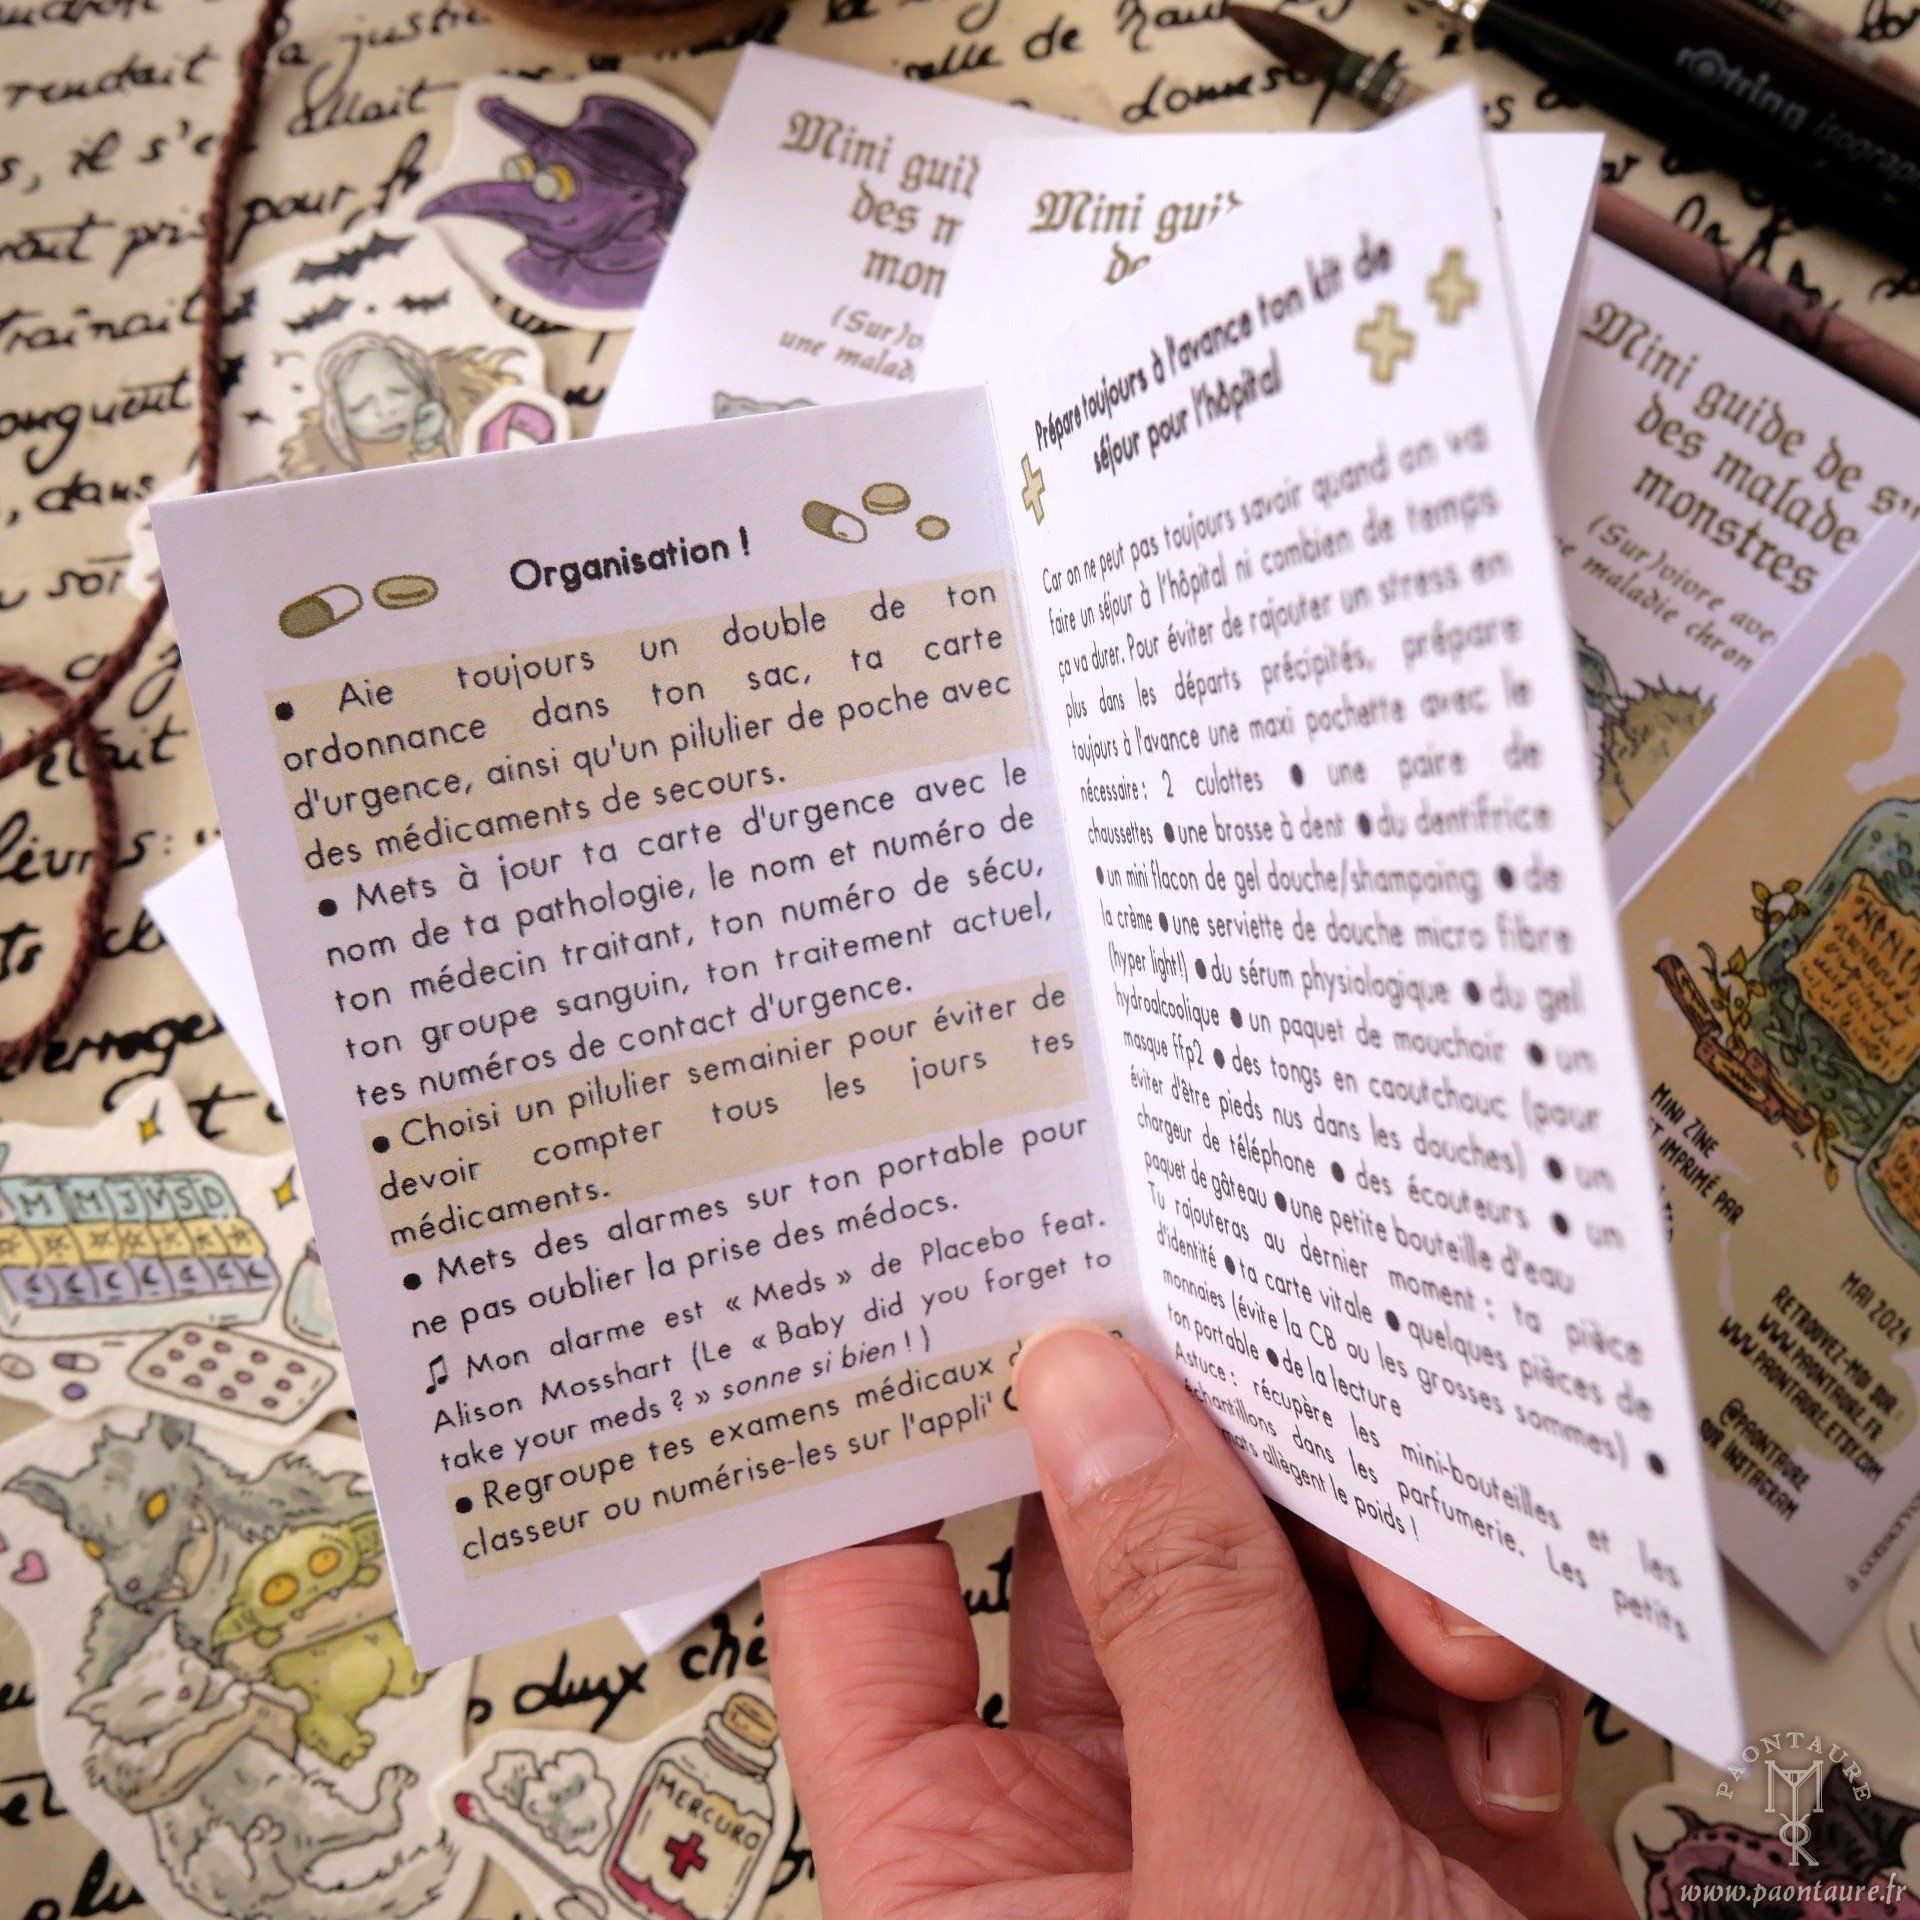 Organisation !
● Aie toujours un double de ton
ordonnance dans ton sac, ta carte
d'urgence, ainsi qu'un pilulier de poche avec
des médicaments de secours.
● Mets à jour ta carte d'urgence avec le
nom de ta pathologie, le nom et numéro de
ton médecin traitant, ton numéro de sécu,
ton groupe sanguin, ton traitement actuel,
tes numéros de contact d'urgence.
● Choisi un pilulier semainier pour éviter de
devoir compter tous les jours tes
médicaments.
● Mets des alarmes sur ton portable pour
ne pas oublier la prise des médocs.
♫ Mon alarme est « Meds » de Placebo feat.
Alison Mosshart (Le « Baby did you forget to
take your meds ? » sonne si bien ! )
● Regroupe tes examens médicaux
classeur ou numérise-les sur l'appli'
Prépare toujours à l'avance ton kit de
séjour pour l'hôpital
Car on ne peut pas toujours savoir quand on va
faire un séjour à l'hôpital ni combien de temps
ça va durer. Pour éviter de rajouter un stress en
plus dans les départs précipités, prépare
toujours à l'avance une maxi pochette avec le
nécessaire : 2 culottes ● une paire de
chaussettes ● une brosse à dent ● du dentifrice
● un mini flacon de gel douche/shampoing ● de
la crème ● une serviette de douche micro fibre
(hyper light!) ● du sérum physiologique ● du gel
hydroalcoolique ● un paquet de mouchoir ● un
masque ffp2 ● des tongs en caoutchouc (pour
éviter d'être pieds nus dans les douches) ● un
chargeur de téléphone ● des écouteurs ● un
paquet de gâteau ● une petite bouteille d'eau
Tu rajouteras au dernier moment : ta pièce
d'identité ● ta carte vitale ● quelques pièces de
monnaies (évite la CB ou les grosses sommes) ●
ton portable ● de la lecture
Astuce : récupère les mini-bouteilles et les
échantillons dans les parfumerie. Les petits
allègent le poids !
Mini
des
Mini
Mini guide de
des malade
monstres
(Sur)vivre ave
maladie chron
MINI ZINE
IMPRIMÉ PAR
MAI 2024
RETROUVEZ-MOI SUR :
WWW.PAONTAURE.FR
WWW.PAONTAURE.ETSY.COM
@PAONTAURE
SUR INSTAGRAM
rotring isograph
rendait
allait
il s'en
pour
dans
M M J V S D
MERCURO
PAONTAURE
www.paontaure.fr